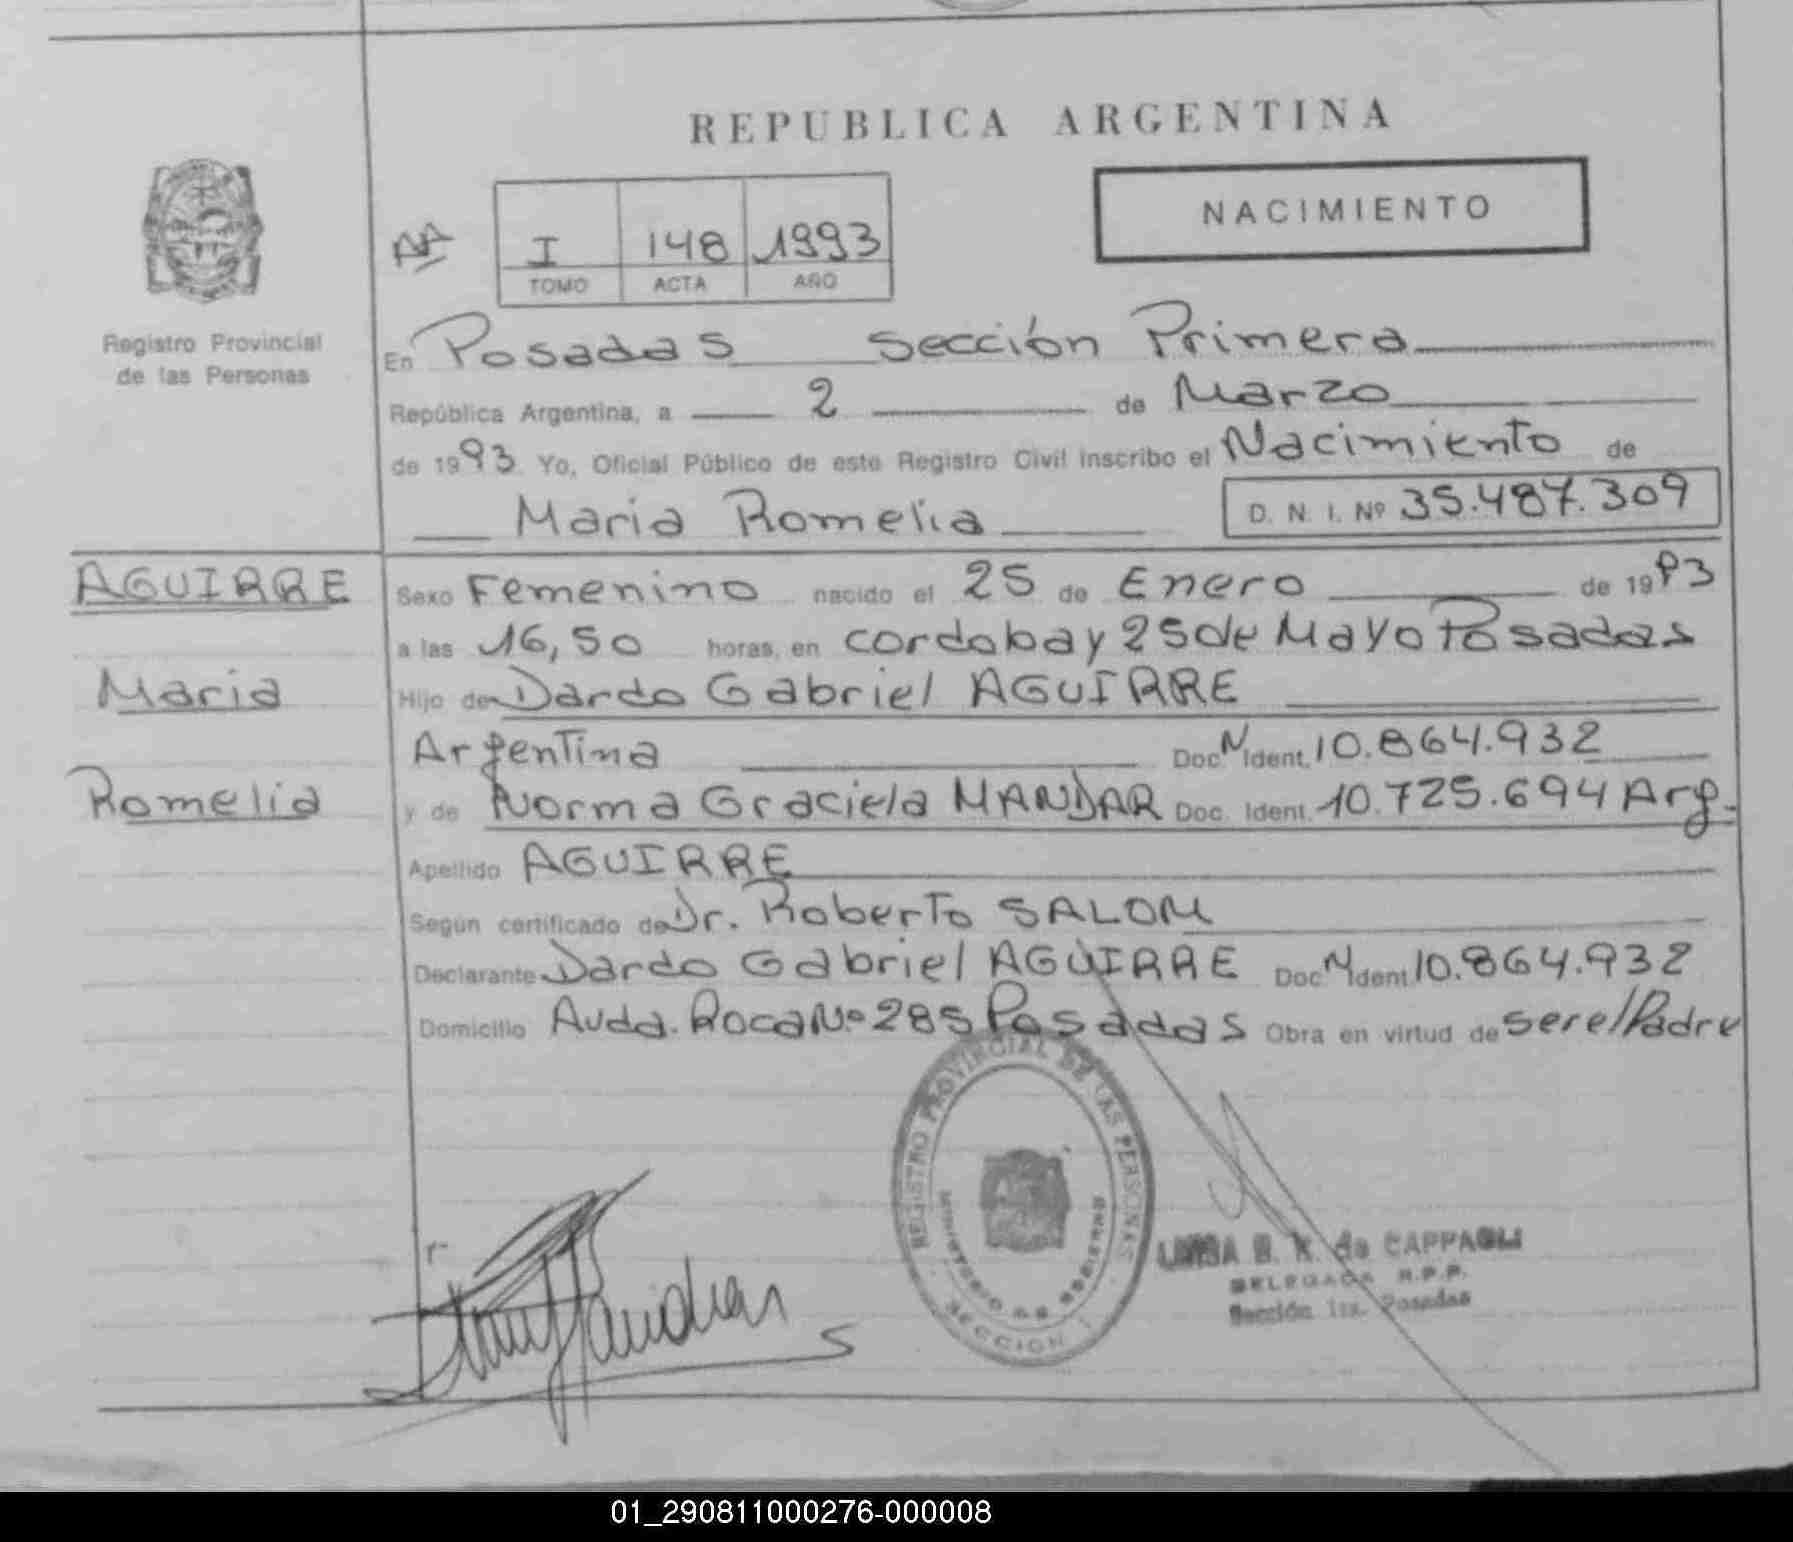 REPUBLICA ARGENTINA
NACIMIENTO
I 148 1993
TOMO ACTA AÑO
Registro Provincial
de las Personas
En Posadas Sección Primera
República Argentina, a 2 de Marzo
de 1993 Yo, Oficial Público de este Registro Civil inscribo el Nacimiento de
Maria Romelia D. N. I. Nº 35.487.309
AGUIRRE
Maria
Romelia
Sexo Femenino nacido el 25 de Enero de 1993
a las 16,50 horas, en cordoba y 25 de Mayo Posadas
Hijo de Dardo Gabriel AGUIRRE
Argentina Doc. N Ident. 10.864.932
y de Norma Graciela MANDAR Doc. Ident. 10.725.694 Arg.
Apellido AGUIRRE
Según certificado de Dr. Roberto SALOM
Declarante Dardo Gabriel AGUIRRE Doc. N Ident. 10.864.932
Domicilio Avda. Roca Nº 285 Posadas Obra en virtud de ser el Padre
REGISTRO PROVINCIAL DE LAS PERSONAS
MINISTERIO DE GOBIERNO
SECCION 1
B. K. de CAPPAGLI
DELEGADA R.P.P.
Sección 1ra. Posadas
01_290811000276-000008